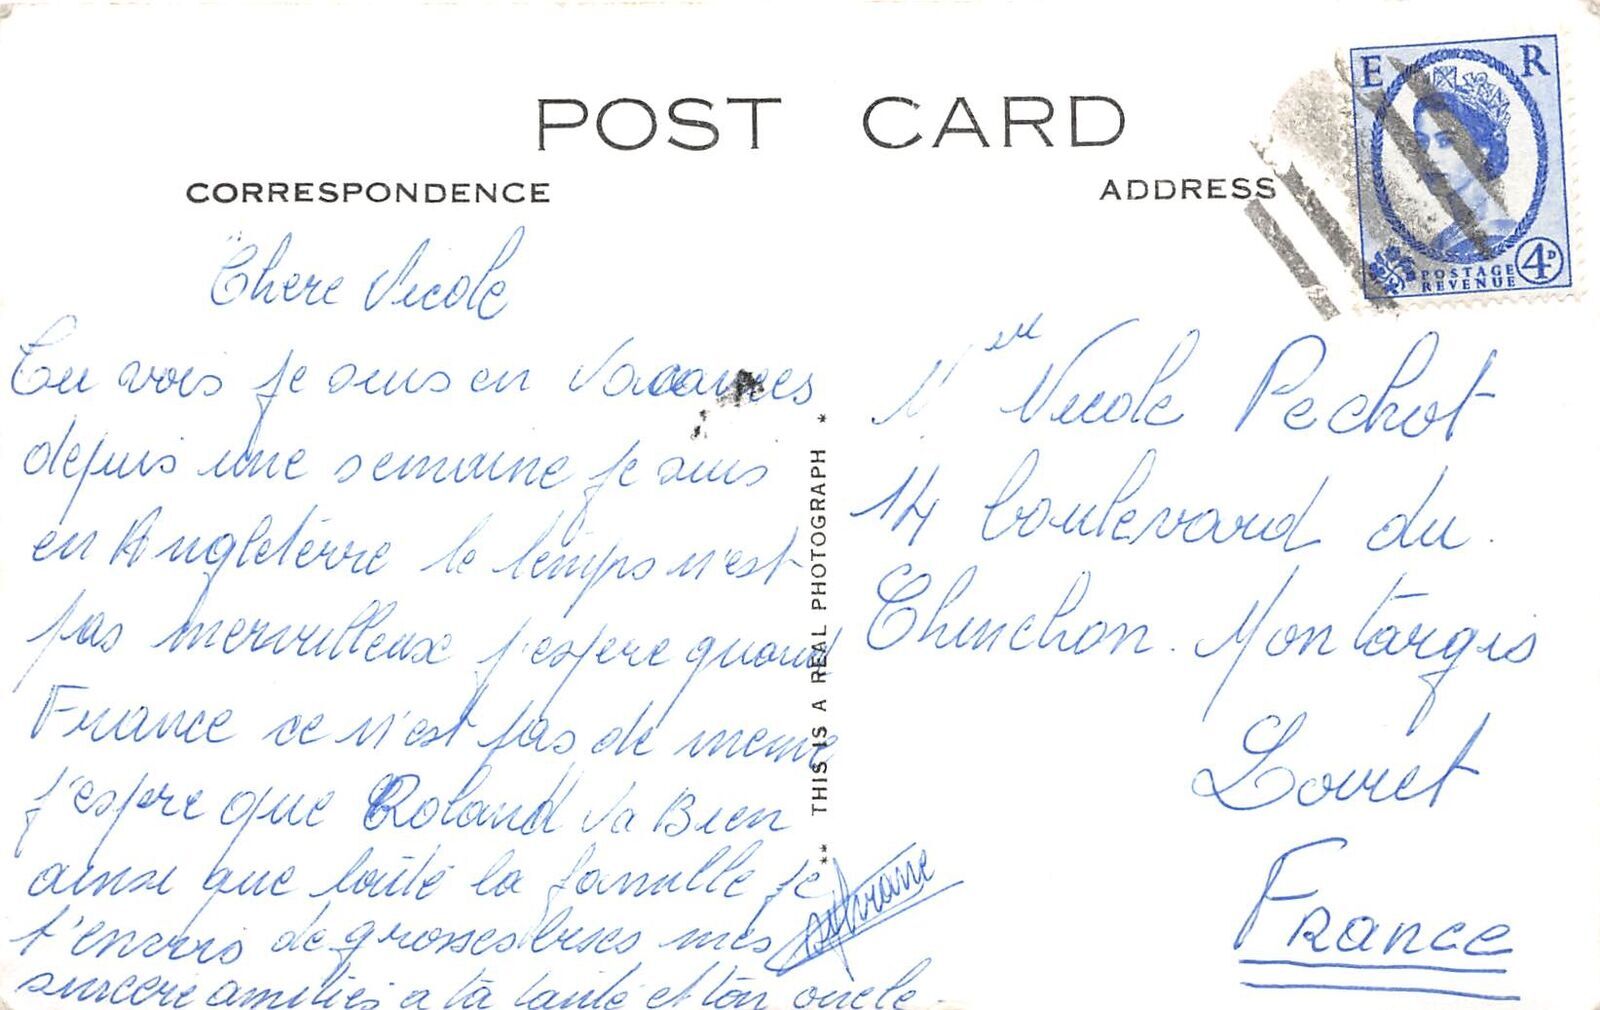 POST CARD
CORRESPONDENCE
ADDRESS
E R
POSTAGE
REVENUE
4D
Chere Nicole
Tu vois je suis en vacances
depuis une semaine je suis
en Angleterre le temps n'est
pas merveilleux j'espère quand
France ce n'est pas de meme
j'espere que Roland va Bien
ainsi que toute la famille je
t'envois de grosses bises mes
sincere amitiés a ta tante et ton oncle.
THIS IS A REAL PHOTOGRAPH
Melle Nicole Pechot
14 boulevard du
Chinchon. Montargis
Loiret
France